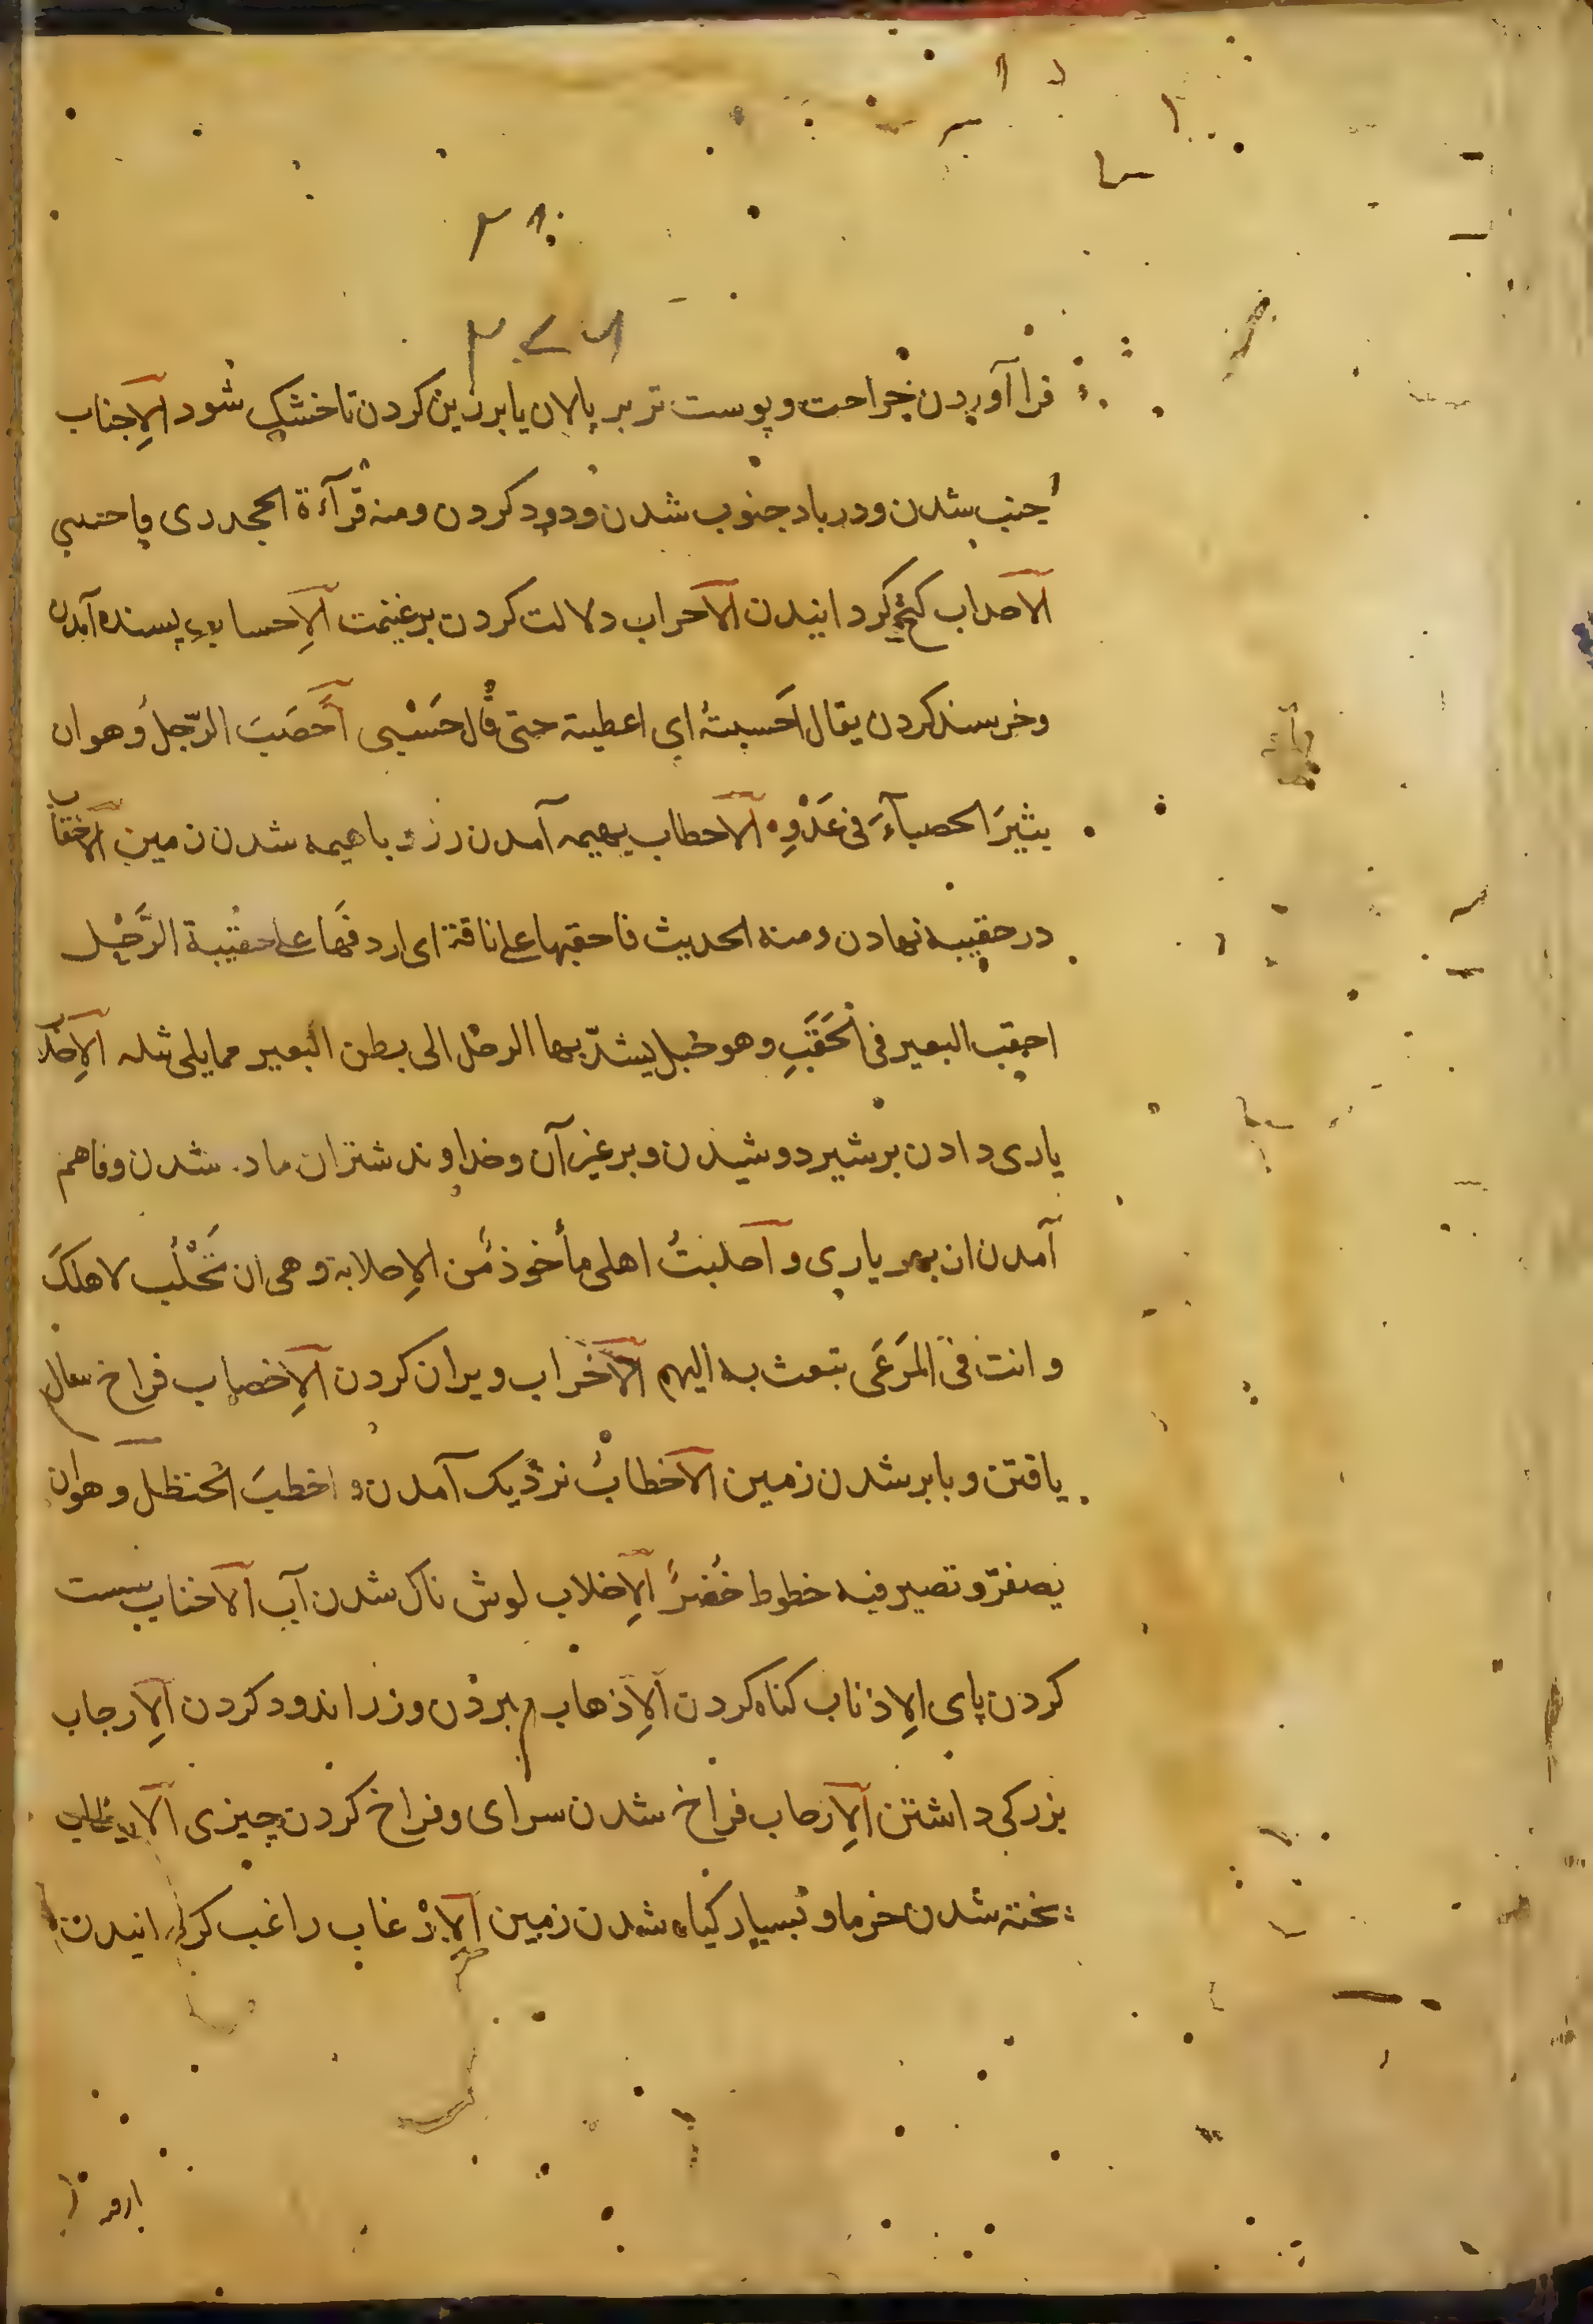 فرا آوردن جراحت و پوست تر بر پالان یا بر زین کردن تا خشک شود الاِجناب
جنب شدن و در باد جنوب شدن و دود کردن ومنه قرآءة الجحدری واجنبنی
الاحداب کخ کردانیدن الاحراب دلالت کردن بر غنیمت الاِحساب بسنده آمدن
وخرسند کردن یقال اَحسبتهُ ای اعطیته حتی قال حَسْبی اَحصَبَ الرّجلُ وهو ان
یثیرَ الحصبآءَ فی عَدْوِه الاحطاب بهیمه آمدن رز و با هیمه شدن زمین الاحقاب
در حقیبه نهادن ومنه الحدیث فاحقبها علی ناقة ای اردفَها علی حقیبة الرَّحْل
احقب البعیر فی الحَقَبِ وهو حبل یشدّ بها الرحل الی بطن البعیر مما یلی ثیله الاِحلا
یاری دادن بر شیر دوشیدن و بر غیر آن وخداوند شتران ماده شدن وفاهم
آمدن از بهر یاری و احلبتُ اهلی مأخوذ مّن الاِحلابة وهی ان تَحْلُب لاهلکَ
وانت فی المَرعَی تبعث به الیهم الاخراب ویران کردن الاِخصاب فراخ سال
یافتن و با بر شدن زمین الاخطابُ نزدیک آمدن و اخطبَ الحنظل وهو ان
یصفرّ و تصیر فیه خطوط خُضرً الاِخلاب لوش ناک شدن آب الاخناب سست
کردن پای الاِذناب کناه کردن الاِذهاب بردن و زر اندود کردن الاِرجاب
بزرکی داشتن الاِرحاب فراخ شدن سرای و فراخ کردن چیزی الارطاب
پخته شدن خرما و بسیار کیاه شدن زمین الاِرْغاب راغب کردانیدن